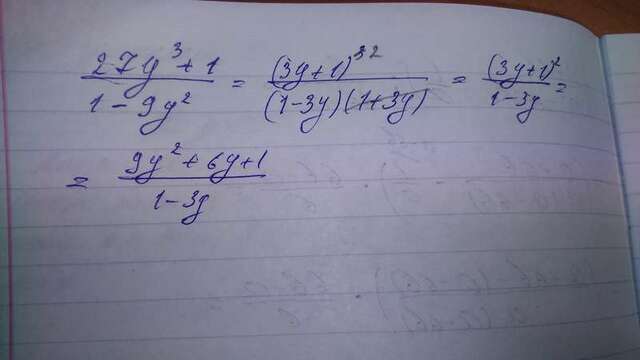 (27y³ + 1)/(1 - 9y²) = (3y+1)³²/((1-3y)(1+3y)) = (3y+1)²/(1-3y) =
= (9y² + 6y + 1)/(1-3y)